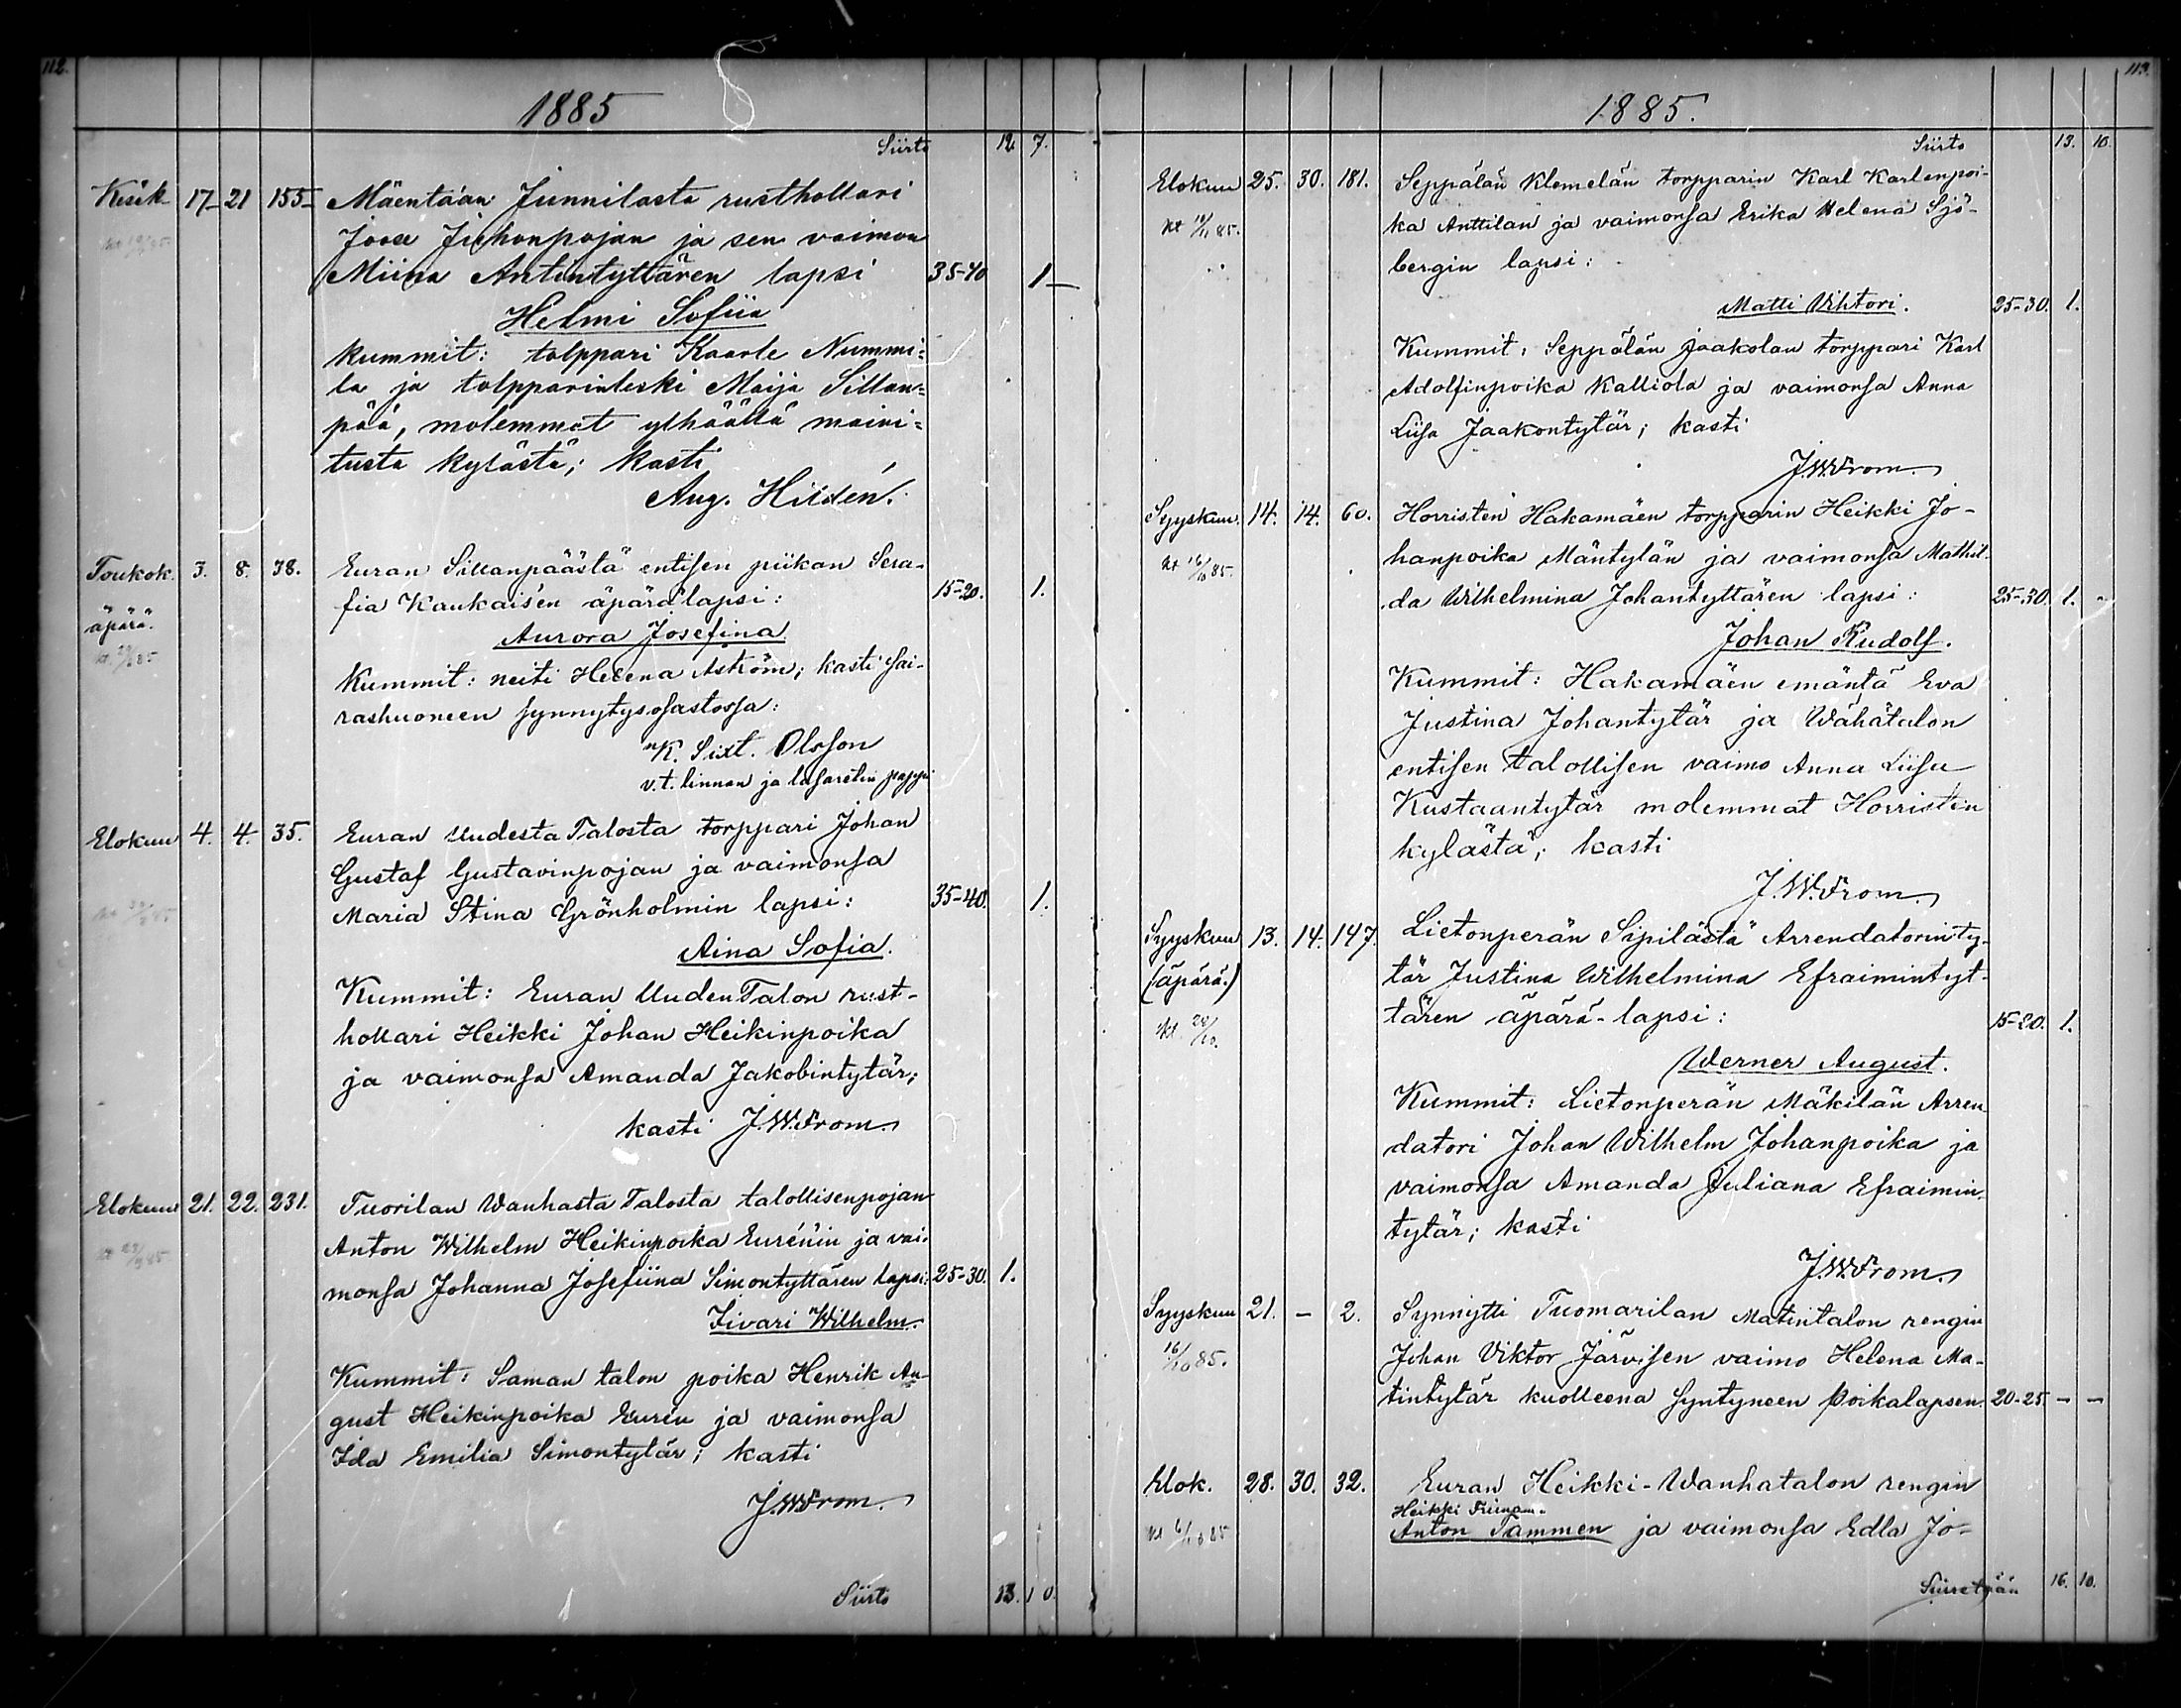 112.
1885
Siirto 12 7.
Kesäk 17 21 155 Mäentaan Junnilasta rusthollari
Joose Juhonpojan ja sen vaimon
Miina Antintyttären lapsi 35-40 1
Helmi Sofiia
kummit: tolppari Kaarle Nummi=
la ja tolpparinleski Maija Sillan=
pää, molemmat ylhäällä maini=
tusta kylästä; kasti
Aug. Hildén.
Toukok. 3. 8. 38. Euran Sillanpäästä entisen piikan Sera-
äpärä. fia Kaukaisen äpärälapsi: 15-20. 1.
Aurora Josefina
Kummit: neiti Helena Aström; kasti sai-
rashuoneen synnytysosastossa:
K. Sixt. Olsson
v.t. linnan ja lasaretin pappi
Elokuu 4. 4. 35. Euran Uudesta Talosta torppari Johan
Gustaf Gustavinpojan ja vaimonsa
Maria Stina Grönholmin lapsi: 35-40. 1.
Aina Sofia.
Kummit: Euran Uuden Talon rust-
hollari Heikki Johan Heikinpoika
ja vaimonsa Amanda Jakobintytär;
kasti J.W.From.
Elokuu 21. 22. 231. Tuorilan Wanhasta Talosta talollisenpojan
Anton Wilhelm Heikinpoika Eurénin ja vai-
monsa Johanna Josefiina Simontyttären lapsi: 25-30. 1.
Iivari Wilhelm.
Kummit: Saman talon poika Henrik Au-
gust Heikinpoika Eurén ja vaimonsa
Ida Emilia Simontytär; kasti
J.W.From.
Siirto 13. 10.
113.
1885.
Siirto 13. 10.
Elokuu 25. 30. 181. Seppälän Klemelän torpparin Karl Karlenpoi-
ka Anttilan ja vaimonsa Erika Helena Sjö-
bergin lapsi:
Matti Vihtori. 25-30. 1.
Kummit: Seppälän Jaakolan torppari Karl
Adolfinpoika Kalliola ja vaimonsa Anna
Liisa Jaakontytär; kasti
J.W.From.
Syyskuu. 14. 14. 60. Horristen Hakamäen torpparin Heikki Jo-
hanpoika Mäntylän ja vaimonsa Mathil-
da Wilhelmina Johantyttären lapsi: 25-30. 1. -
Johan Rudolf.
Kummit: Hakamäen emäntä Eva
Justina Johantytär ja Wähätalon
entisen talollisen vaimo Anna Liisa
Kustaantytär molemmat Horristen
kylästä; kasti
J.W.From.
Syyskuu 13. 14. 147. Lietonperän Sipilästä Arrendatorinty-
(äpärä.) tär Justina Wilhelmina Efraimintyt-
tären äpärä-lapsi: 15-20. 1.
Werner August.
Kummit: Lietonperän Mäkilän Arren-
datori Johan Wilhelm Johanpoika ja
vaimonsa Amanda Juliana Efraimin-
tytär; kasti
J.W.From.
Syyskuu 21. - 2. Synnytti Tuomarilan Matintalon rengin
16/10 85. Johan Viktor Järvisen vaimo Helena Ma-
tintytär kuolleena syntyneen poikalapsen. 20-25. - -
Elok. 28. 30. 32. Euran Heikki-Wanhatalon rengin
Heikki
Anton Tammen ja vaimonsa Edla Jo-
Siirretään 16. 10.